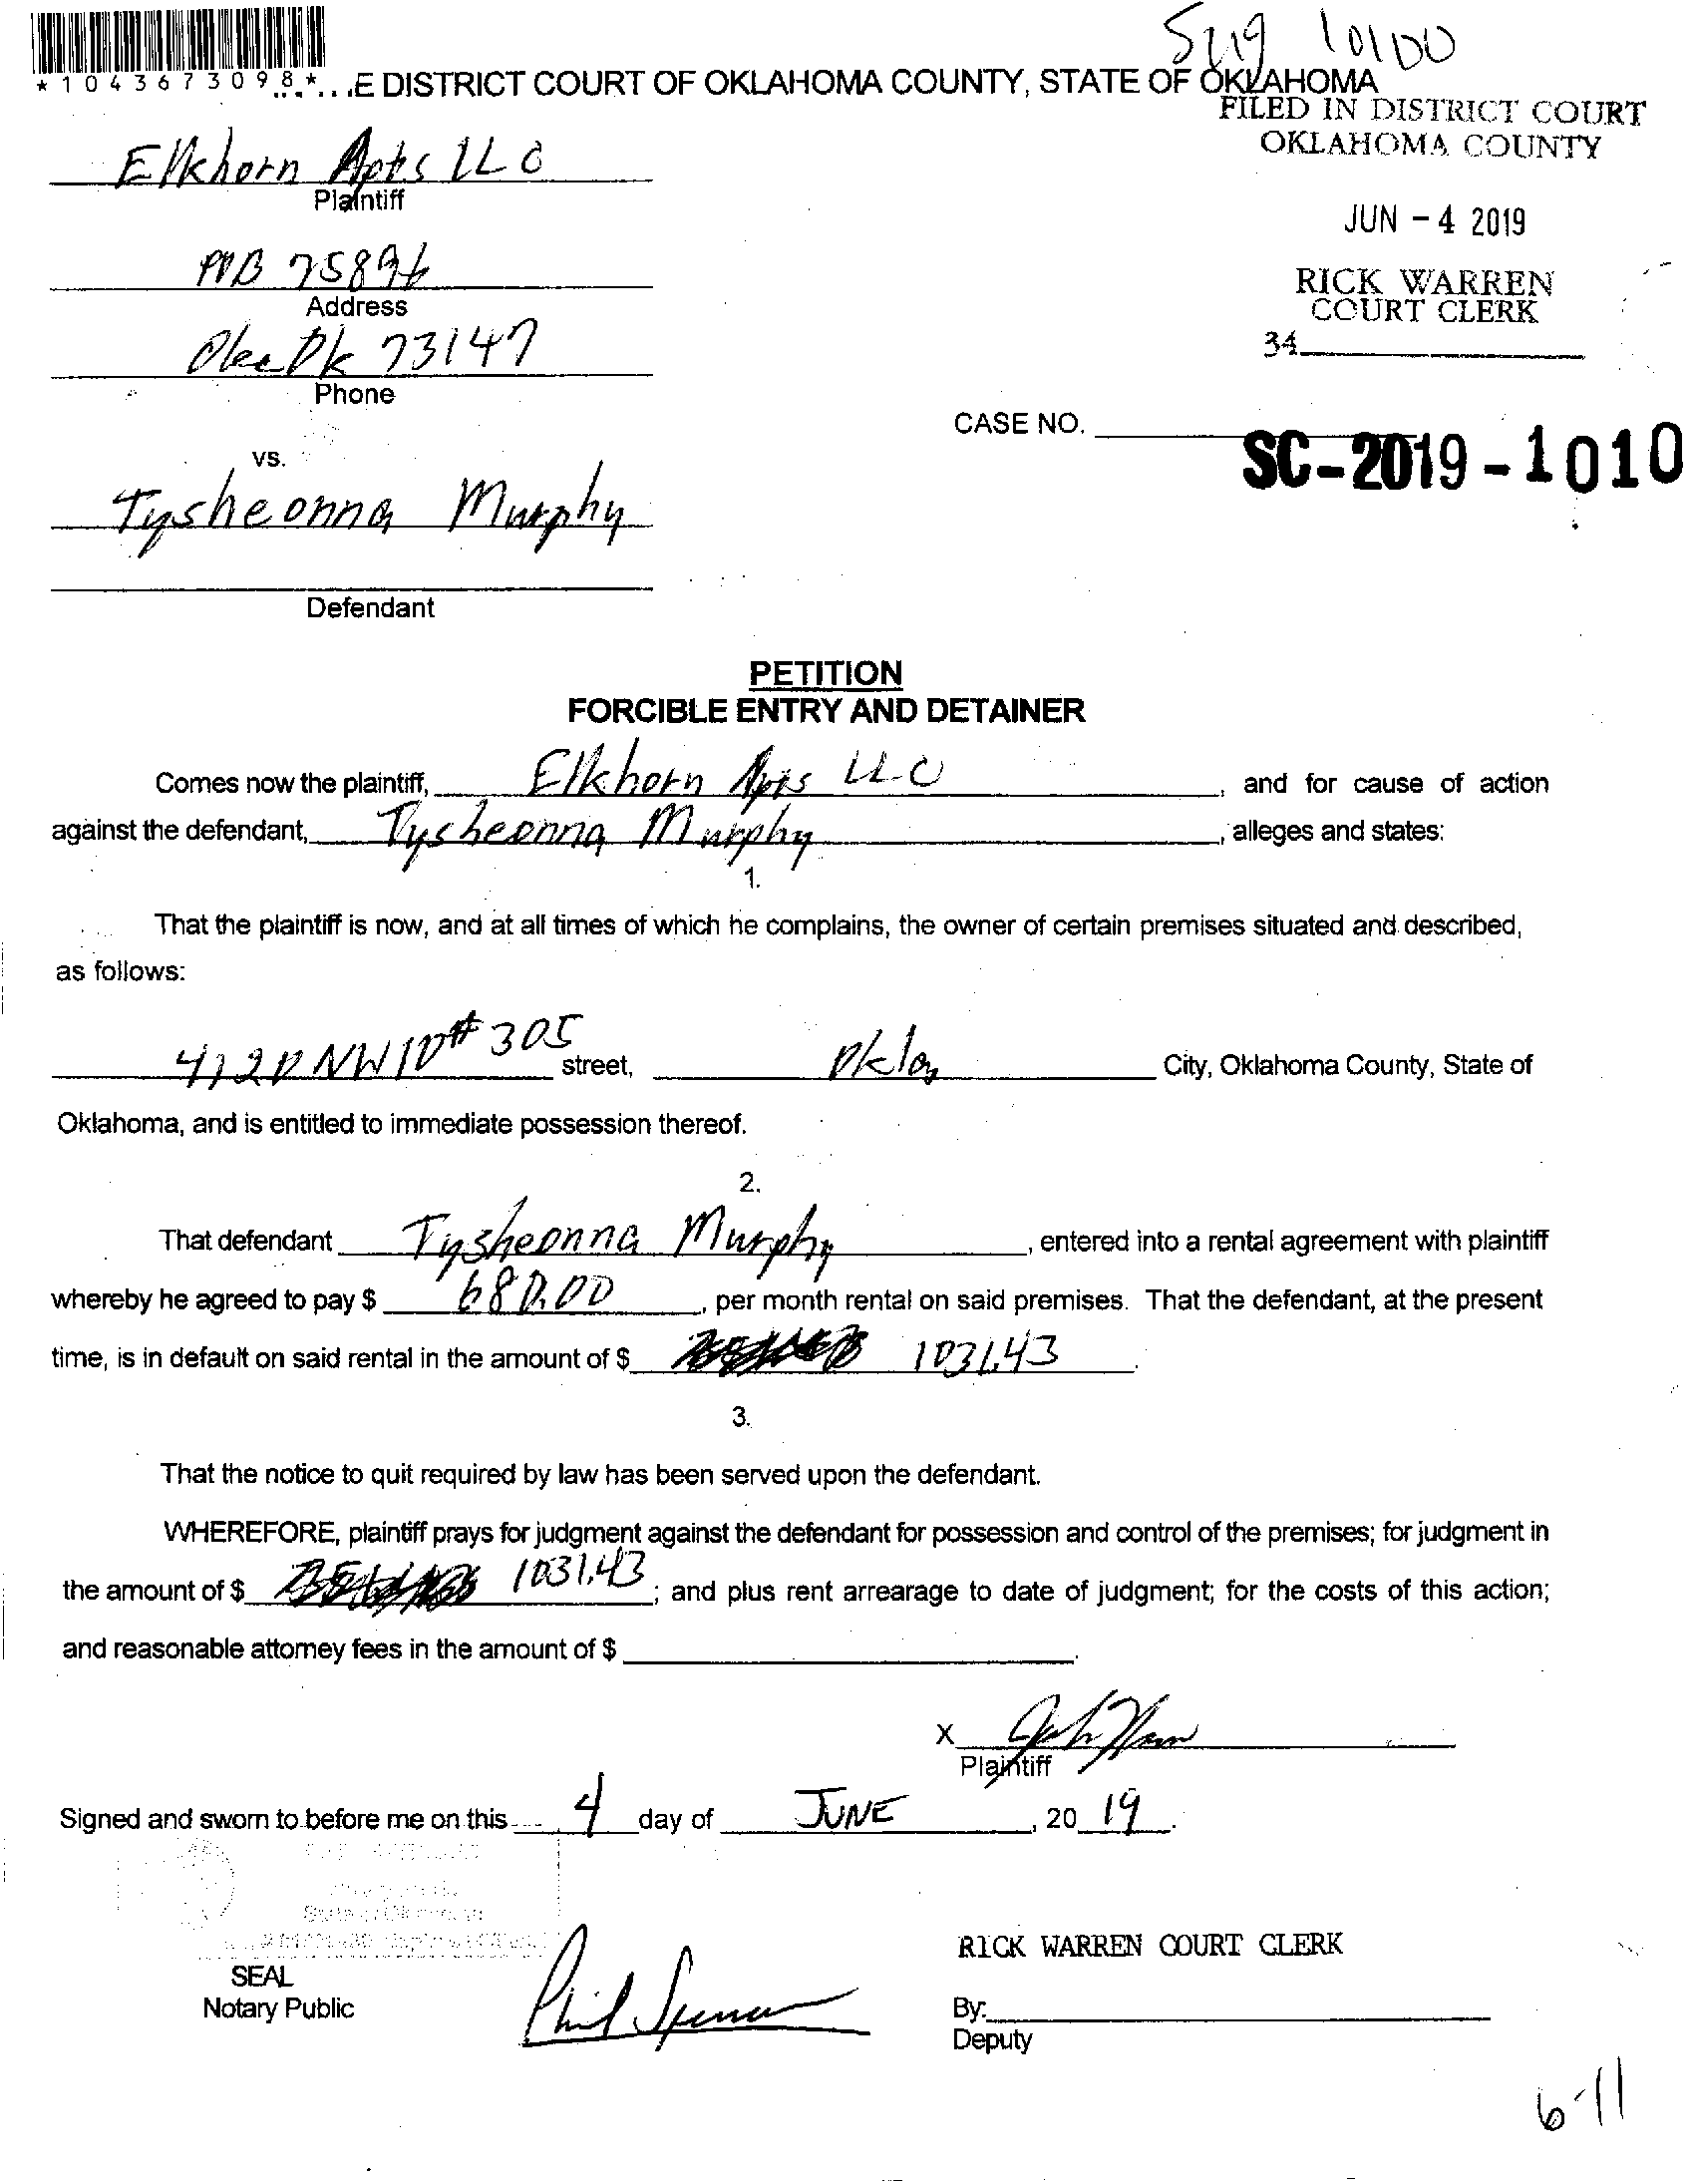 Sug 10100
*1043673098*...E DISTRICT COURT OF OKLAHOMA COUNTY, STATE OF OKLAHOMA
FILED IN DISTRICT COURT
OKLAHOMA COUNTY
Elkhorn Apts LLC
Plaintiff
JUN - 4 2019
POB 75896
Address
RICK WARREN
COURT CLERK
34
Okc Ok 73147
Phone
CASE NO.
SC-2019-1010
vs.
Tysheonna Murphy
Defendant
PETITION
FORCIBLE ENTRY AND DETAINER
Comes now the plaintiff, Elkhorn Apts LLC, and for cause of action
against the defendant, Tysheonna Murphy, alleges and states:
1.
That the plaintiff is now, and at all times of which he complains, the owner of certain premises situated and described,
as follows:
4120 NW 10 # 305 street, Okla City, Oklahoma County, State of
Oklahoma, and is entitled to immediate possession thereof.
2.
That defendant Tysheonna Murphy, entered into a rental agreement with plaintiff
whereby he agreed to pay $ 680.00, per month rental on said premises. That the defendant, at the present
time, is in default on said rental in the amount of $ 1031.43.
3.
That the notice to quit required by law has been served upon the defendant.
WHEREFORE, plaintiff prays for judgment against the defendant for possession and control of the premises; for judgment in
the amount of $ 1031.43; and plus rent arrearage to date of judgment; for the costs of this action;
and reasonable attorney fees in the amount of $
X
Plaintiff
Signed and sworn to before me on this 4 day of JUNE, 20 19.
RICK WARREN COURT CLERK
SEAL
Notary Public
Phil Spencer
By:
Deputy
6-11